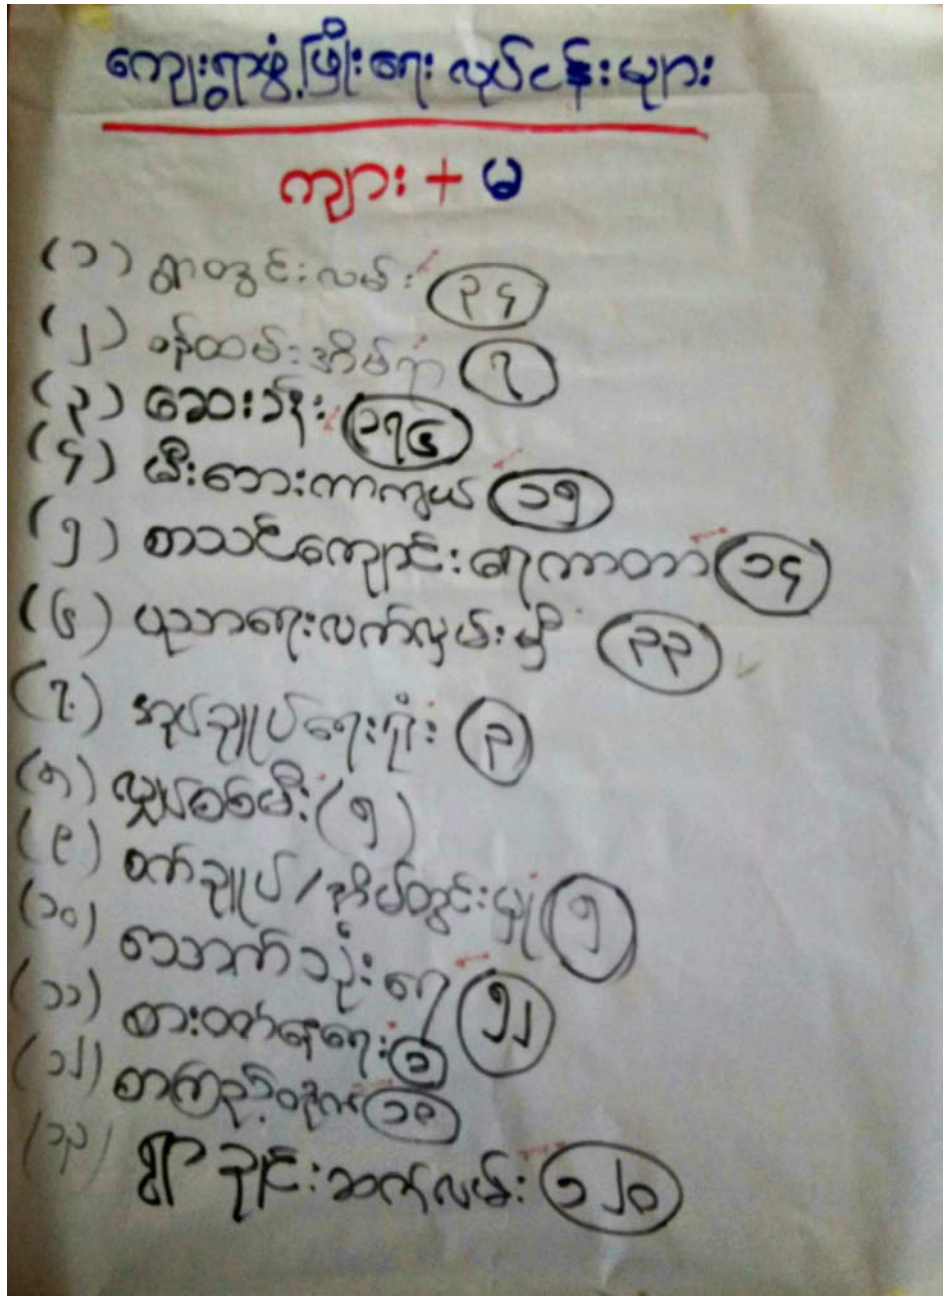 ကျေးရွာဖွံ့ဖြိုးရေး လုပ်ငန်းများ
ကျား + မ
(၁) ရွာတွင်းလမ်း (၃၄)
(၂) ဝန်ထမ်းအိမ်ရာ (၇)
(၃) ဆေးခန်း (၁၇၆)
(၄) မီးဘေးကာကွယ် (၁၅)
(၅) စာသင်ကျောင်းရေကာတာ (၁၄)
(၆) ပညာရေးလက်လှမ်းမှီ (၃၃)
(၇) အုပ်ချုပ်ရေးရုံး (၃)
(၈) လျှပ်စစ်မီး (၅)
(၉) စက်ချုပ်/အိမ်တွင်းမှု (၅)
(၁၀) သောက်သုံးရေ (၅၂)
(၁၁) စားဝတ်နေရေး (၁)
(၁၂) စာကြည့်တိုက် (၁၉)
(၁၃) ရွာချင်းဆက်လမ်း (၁၂၀)